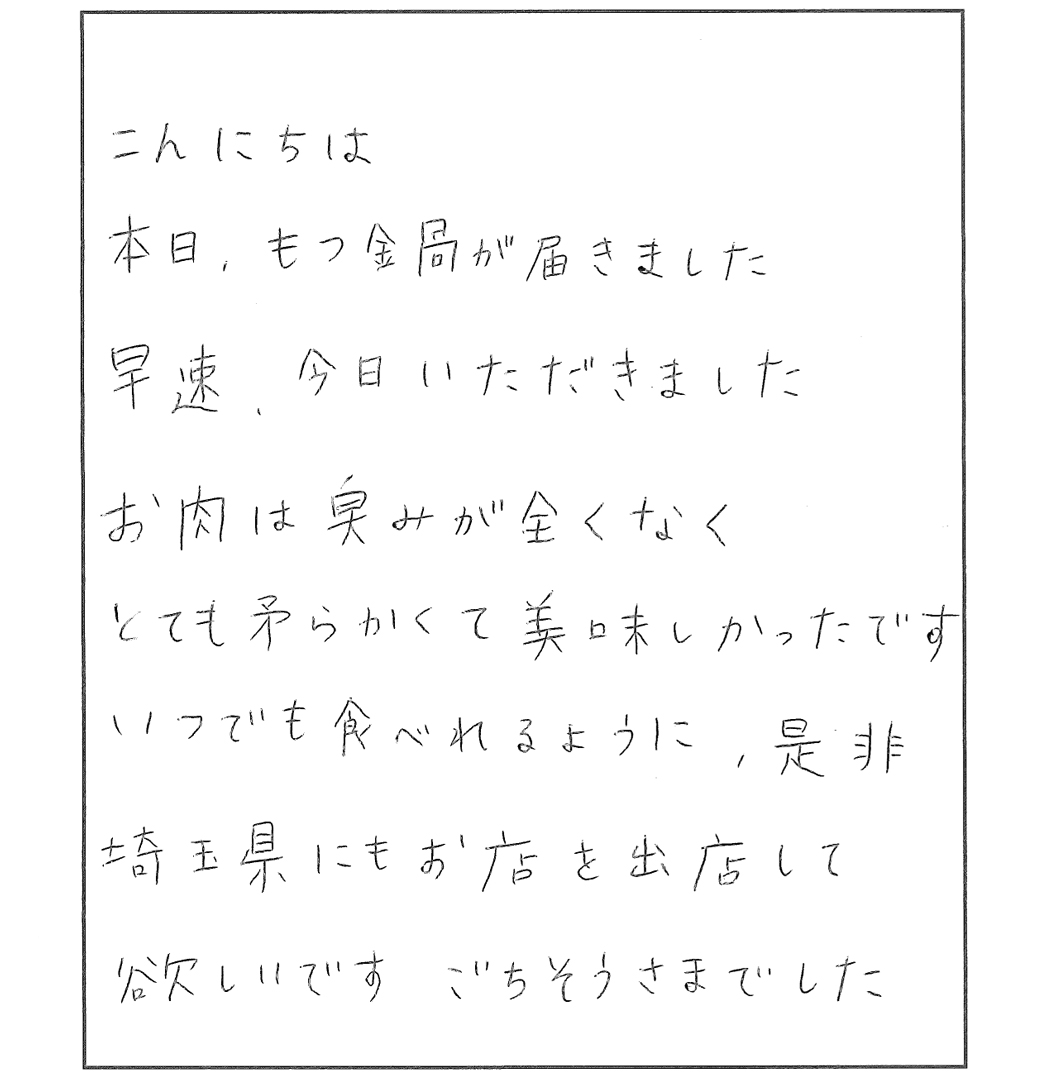 こんにちは
本日、もつ鍋が届きました
早速、今日いただきました
お肉は臭みが全くなく
とても柔らかくて美味しかったです
いつでも食べれるように、是非
埼玉県にもお店を出店して
欲しいです ごちそうさまでした